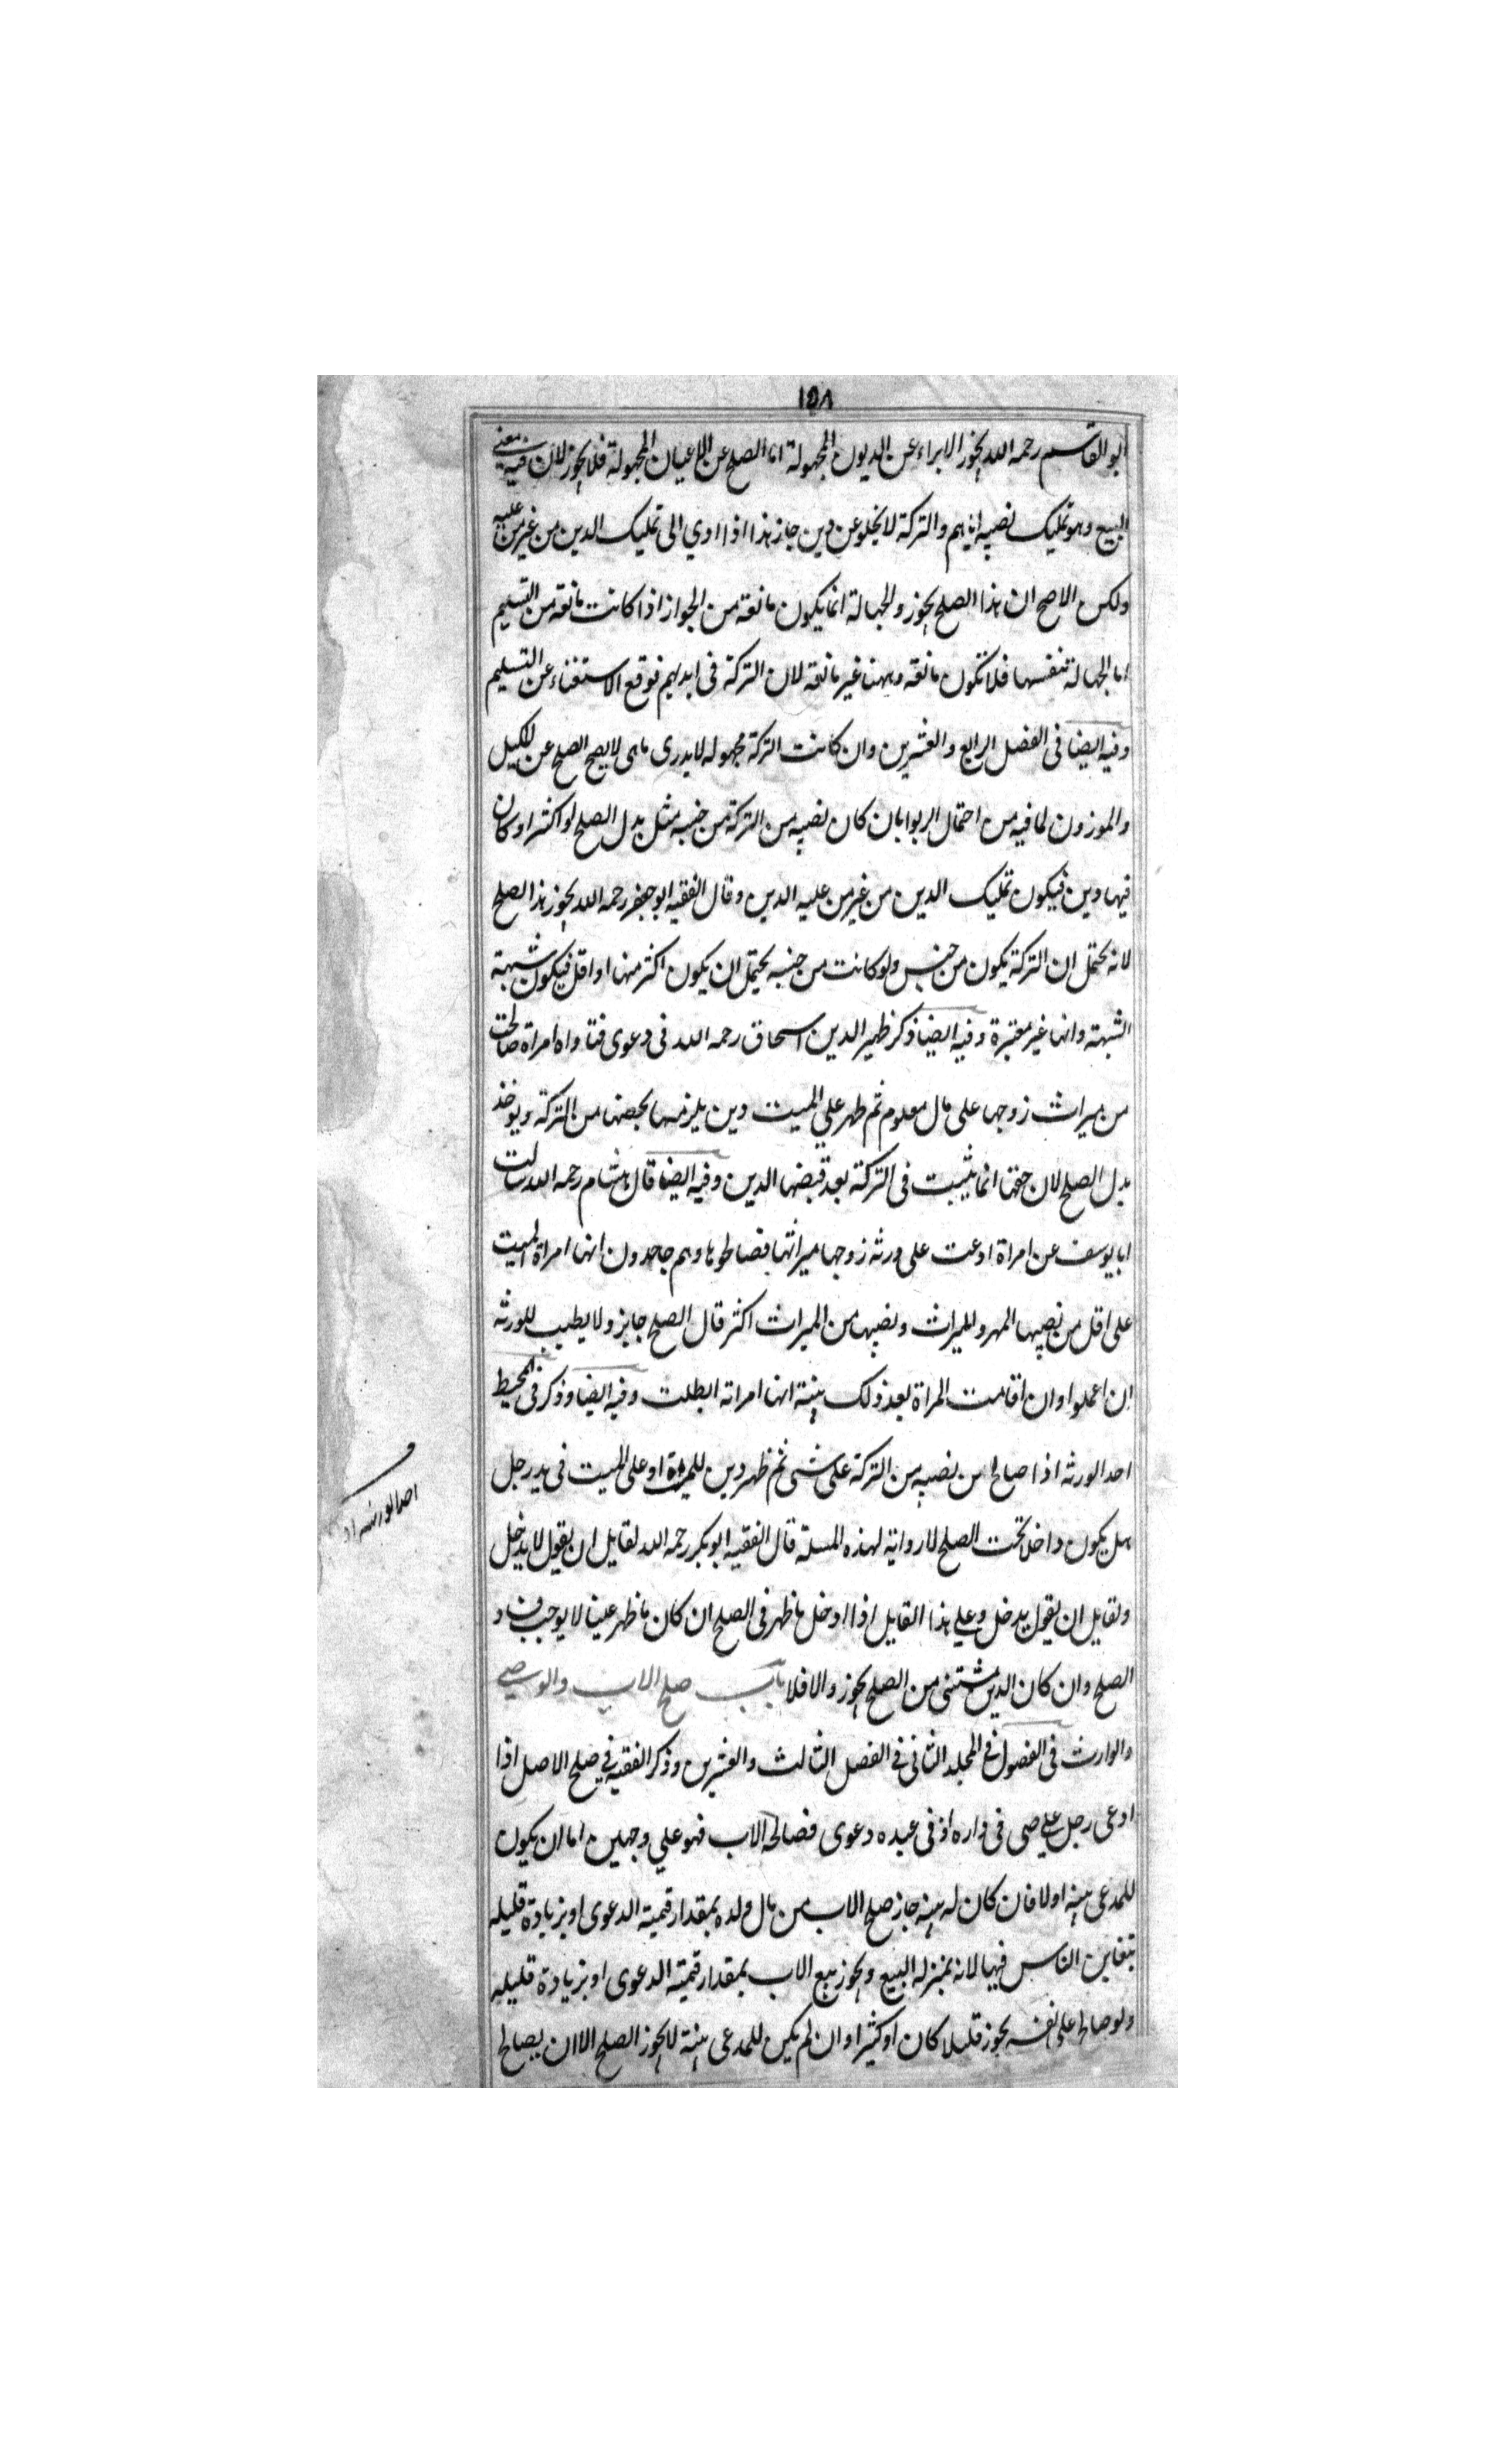 ١٥٨
ابو القاسم رحمه الله يجوز الابراء عن الديون المجهولة اما الصلح عن الاعيان المجهولة فلا يجوز لان فيه معنى
البيع وهو تمليك نصيبه اياهم والتركة لا يخلو عن دين جاز هذا اذا ادي الى تمليك الدين من غير من عليه
ولكن الاصح ان هذا الصلح يجوز والجهالة انما يكون مانعة من الجواز اذا كانت مانعة من التسليم
اما الجهالة بنفسها فلا تكون مانعة وههنا غير مانعة لان التركة فى ايديهم فوقع الاستغناء عن التسليم
وفيه ايضا فى الفصل الرابع والعشرين وان كانت التركة مجهوله لا يدرى ماهى لا يصح الصلح عن المكيل
والموزون لما فيه من احتمال الربوا بان كان نصيبه من التركة من جنسه مثل بدل الصلح او اكثر او كان
فيها دين فيكون تمليك الدين من غير من عليه الدين وقال الفقيه ابو جعفر رحمه الله يجوز هذا الصلح
لانه يحتمل ان التركة يكون من جنس ولو كانت من جنسه يحتمل ان يكون اكثر منها او اقل فيكون شبهة
الشبهة وانها غير معتبرة وفيه ايضا ذكر ظهير الدين اسحاق رحمه الله فى دعوى فتاواه امراة صالحت
من ميراث زوجها على مال معلوم ثم ظهر علي الميت دين يلزمها بحصتها من التركة ويوخذ
بدل الصلح لان حقها انما يثبت فى التركة بعد قبضها الدين وفيه ايضا قال هشام رحمه الله سالت
ابا يوسف عن امراة ادعت على ورثه زوجها ميراثها فصالحوها وهم جاحدون انها امراة الميت
على اقل من نصيبها المهر والميراث ونصيبها من الميراث اكثر قال الصلح جايز ولا يطيب للورثه
ان اعملوا وان اقامت المراة بعد ذلك بينة انها امراته ابطلت وفيه ايضا وذكر فى المحيط
احد الورثه اذا صالح من نصيبه من التركة على شى ثم ظهر دين للميت او على الميت فى يد رجل
هل يكون داخلا تحت الصلح لا رواية لهذه المسلة قال الفقيه ابو بكر رحمه الله لقايل ان يقول لا يدخل
ولقايل ان يقول يدخل وعلي هذا القايل اذا ادخل ما ظهر فى الصلح ان كان ما ظهر عينا لا يوجب فساد
الصلح وان كان الدين مستثنى من الصلح يجوز والا فلا باب صلح الاب والوصي
والوارث فى الفصول فى المجلد الثانى فى الفصل الثالث والعشرين وذكر الفقيه فى صلح الاصل اذا
ادعى رجل علي صبى فى داره او فى عبده دعوى فصالحه الاب فهو علي وجهين اما ان يكون
للمدعى بينه اولا فان كان له بينه جاز صلح الاب من مال ولده بمقدار قيمة الدعوى او بزيادة قليله
يتغابن الناس فيها لانه بمنزله البيع ويجوز بيع الاب بمقدار قيمة الدعوى او بزيادة قليله
ولو صالح على نفسه يجوز قليلا كان او كثيرا وان لم يكن للمدعى بينة لا يجوز الصلح الا ان يصالح
احد الورثه اذا